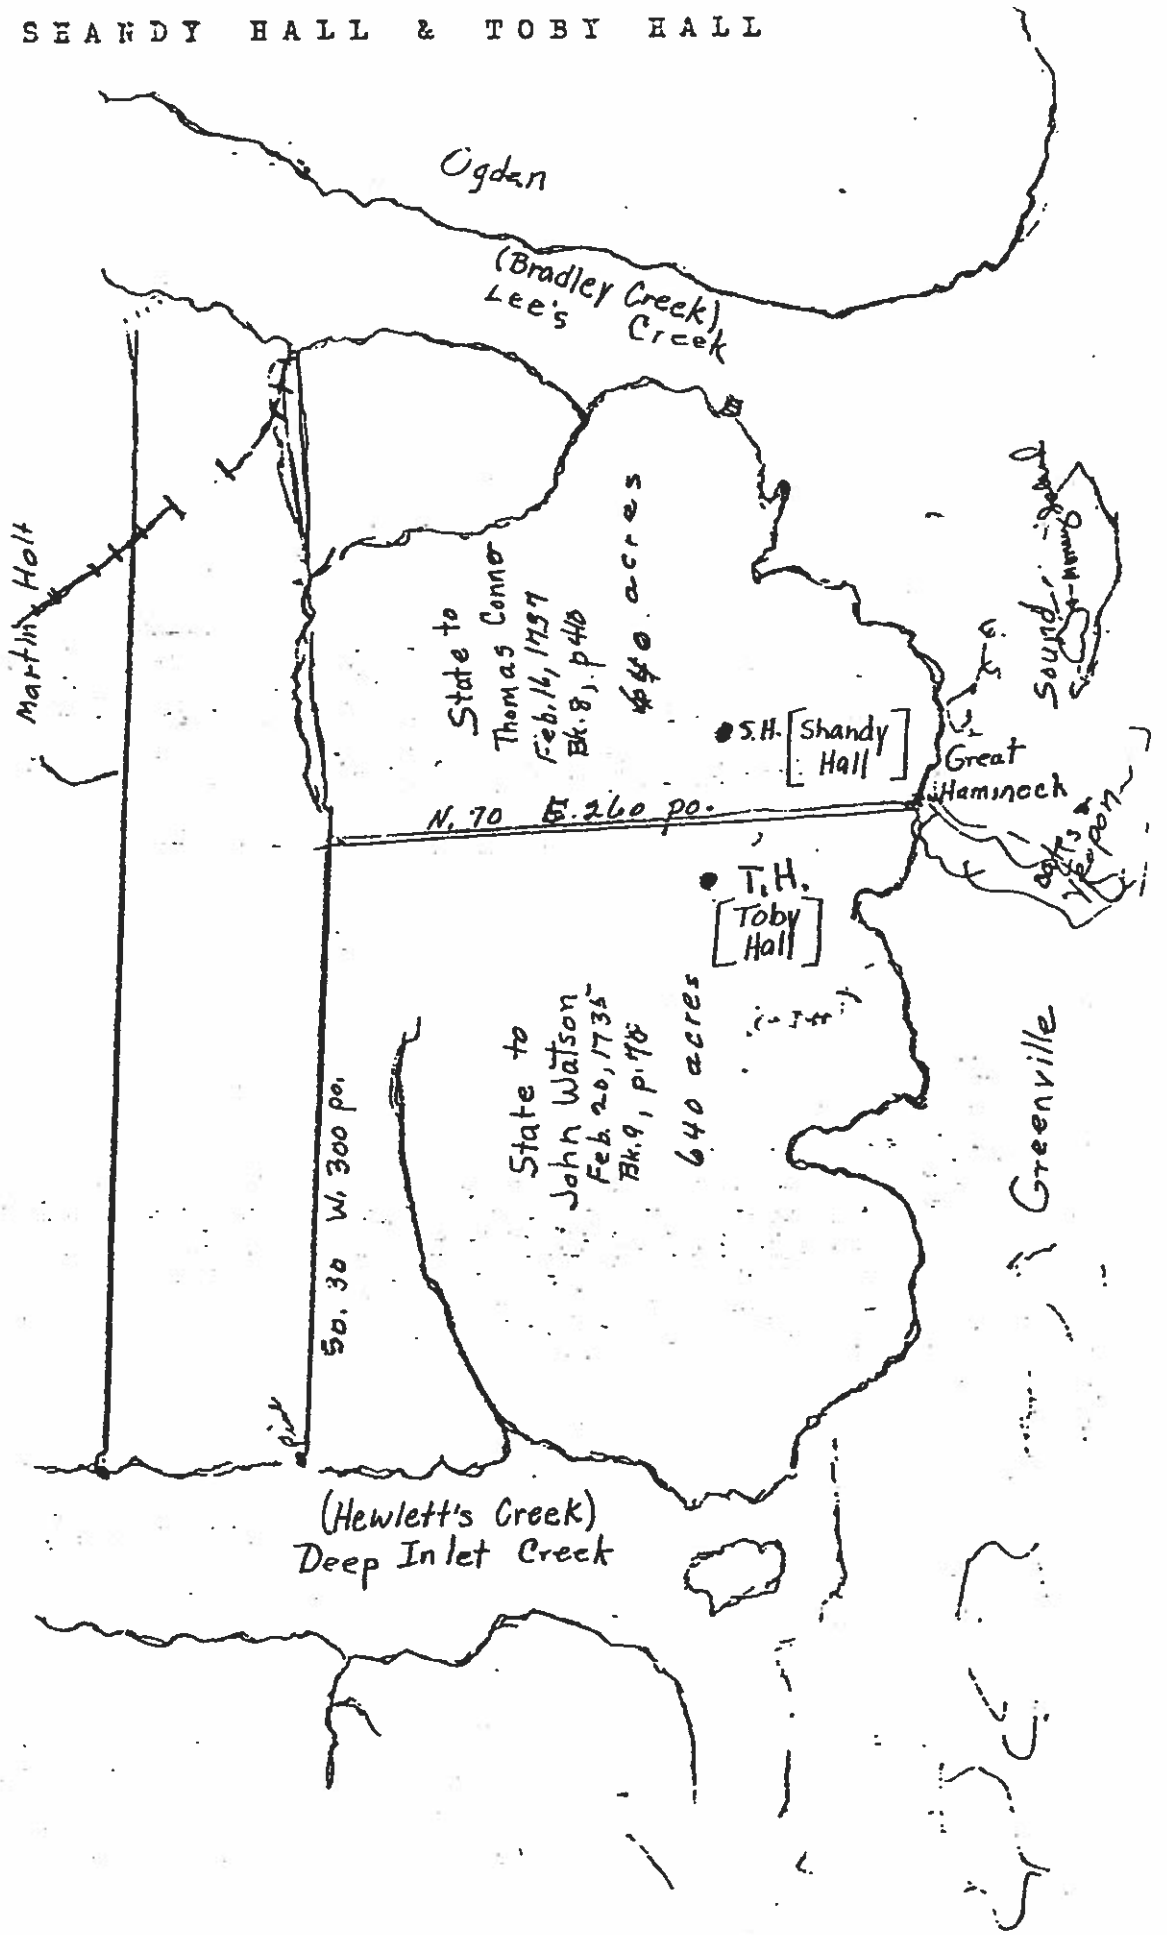 SHANDY HALL & TOBY HALL
Ogden
(Bradley Creek)
Lee's Creek
Martin Holt
State to
Thomas Conner
Feb. 16, 1737
Bk. 8, p 40
640 acres
Sound
S.H. [Shandy
Hall]
Great
Hammock
N. 70 E. 260 po.
T.H.
[Toby
Hall]
State to
John Watson
Feb. 20, 1735
Bk. 9, p.
640 acres
Greenville
So. 30 W. 300 po.
(Hewlett's Creek)
Deep Inlet Creek